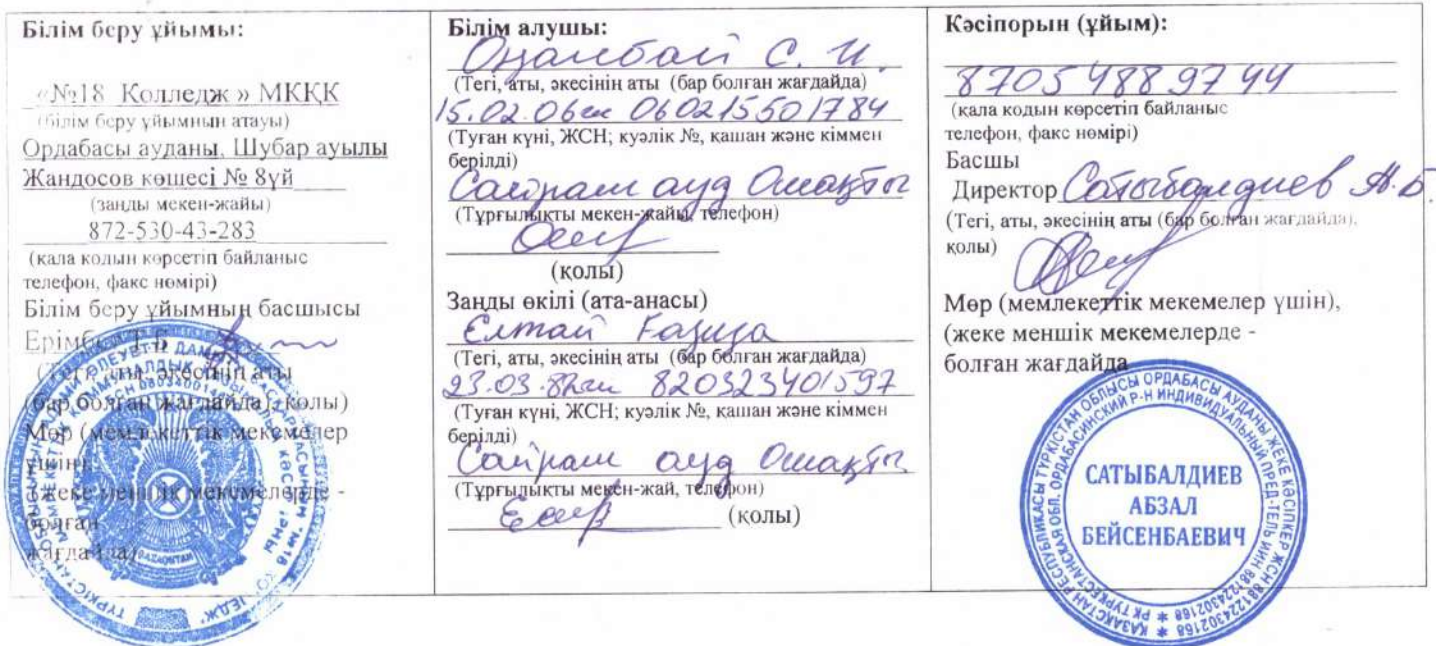 Білім беру ұйымы:
«№18 Колледж » МКҚК
(білім беру ұйымның атауы)
Ордабасы ауданы, Шубар ауылы
Жандосов көшесі № 8үй
(заңды мекен-жайы)
872-530-43-283
(қала кодын көрсетіп байланыс
телефон, факс нөмірі)
Білім беру ұйымның басшысы
(Тегі, аты, әкесінің аты
(бар болған жағдайда), қолы)
Мөр (мемлекеттік мекемелер
үшін),
(жеке меншік мекемелерде -
болған
жағдайда)
Білім алушы:
С. И.
(Тегі, аты, әкесінің аты (бар болған жағдайда)
15.02.06 060215501784
(Туған күні, ЖСН; куәлік №, қашан және кіммен
берілді)
Сайрам ауд
(Тұрғылықты мекен-жайы, телефон)
(қолы)
Заңды өкілі (ата-анасы)
Елтай Ғазиза
(Тегі, аты, әкесінің аты (бар болған жағдайда)
23.03.82 820323401597
(Туған күні, ЖСН; куәлік №, қашан және кіммен
берілді)
Сайрам ауд
(Тұрғылықты мекен-жай, телефон)
(қолы)
Кәсіпорын (ұйым):
8705 488 97 44
(қала кодын көрсетіп байланыс
телефон, факс нөмірі)
Басшы
Директор Сатыбалдиев А.Б.
(Тегі, аты, әкесінің аты (бар болған жағдайда),
қолы)
Мөр (мемлекеттік мекемелер үшін),
(жеке меншік мекемелерде -
болған жағдайда
ҚАЗАҚСТАН РЕСПУБЛИКАСЫ ТҮРКІСТАН ОБЛЫСЫ ОРДАБАСЫ АУДАНЫ ЖЕКЕ КӘСІПКЕР ЖСН 881224302168
РК ТУРКЕСТАНСКАЯ ОБЛ. ОРДАБАСИНСКИЙ Р-Н ИНДИВИДУАЛЬНЫЙ ПРЕД-ТЕЛЬ ИИН 881224302168
САТЫБАЛДИЕВ
АБЗАЛ
БЕЙСЕНБАЕВИЧ